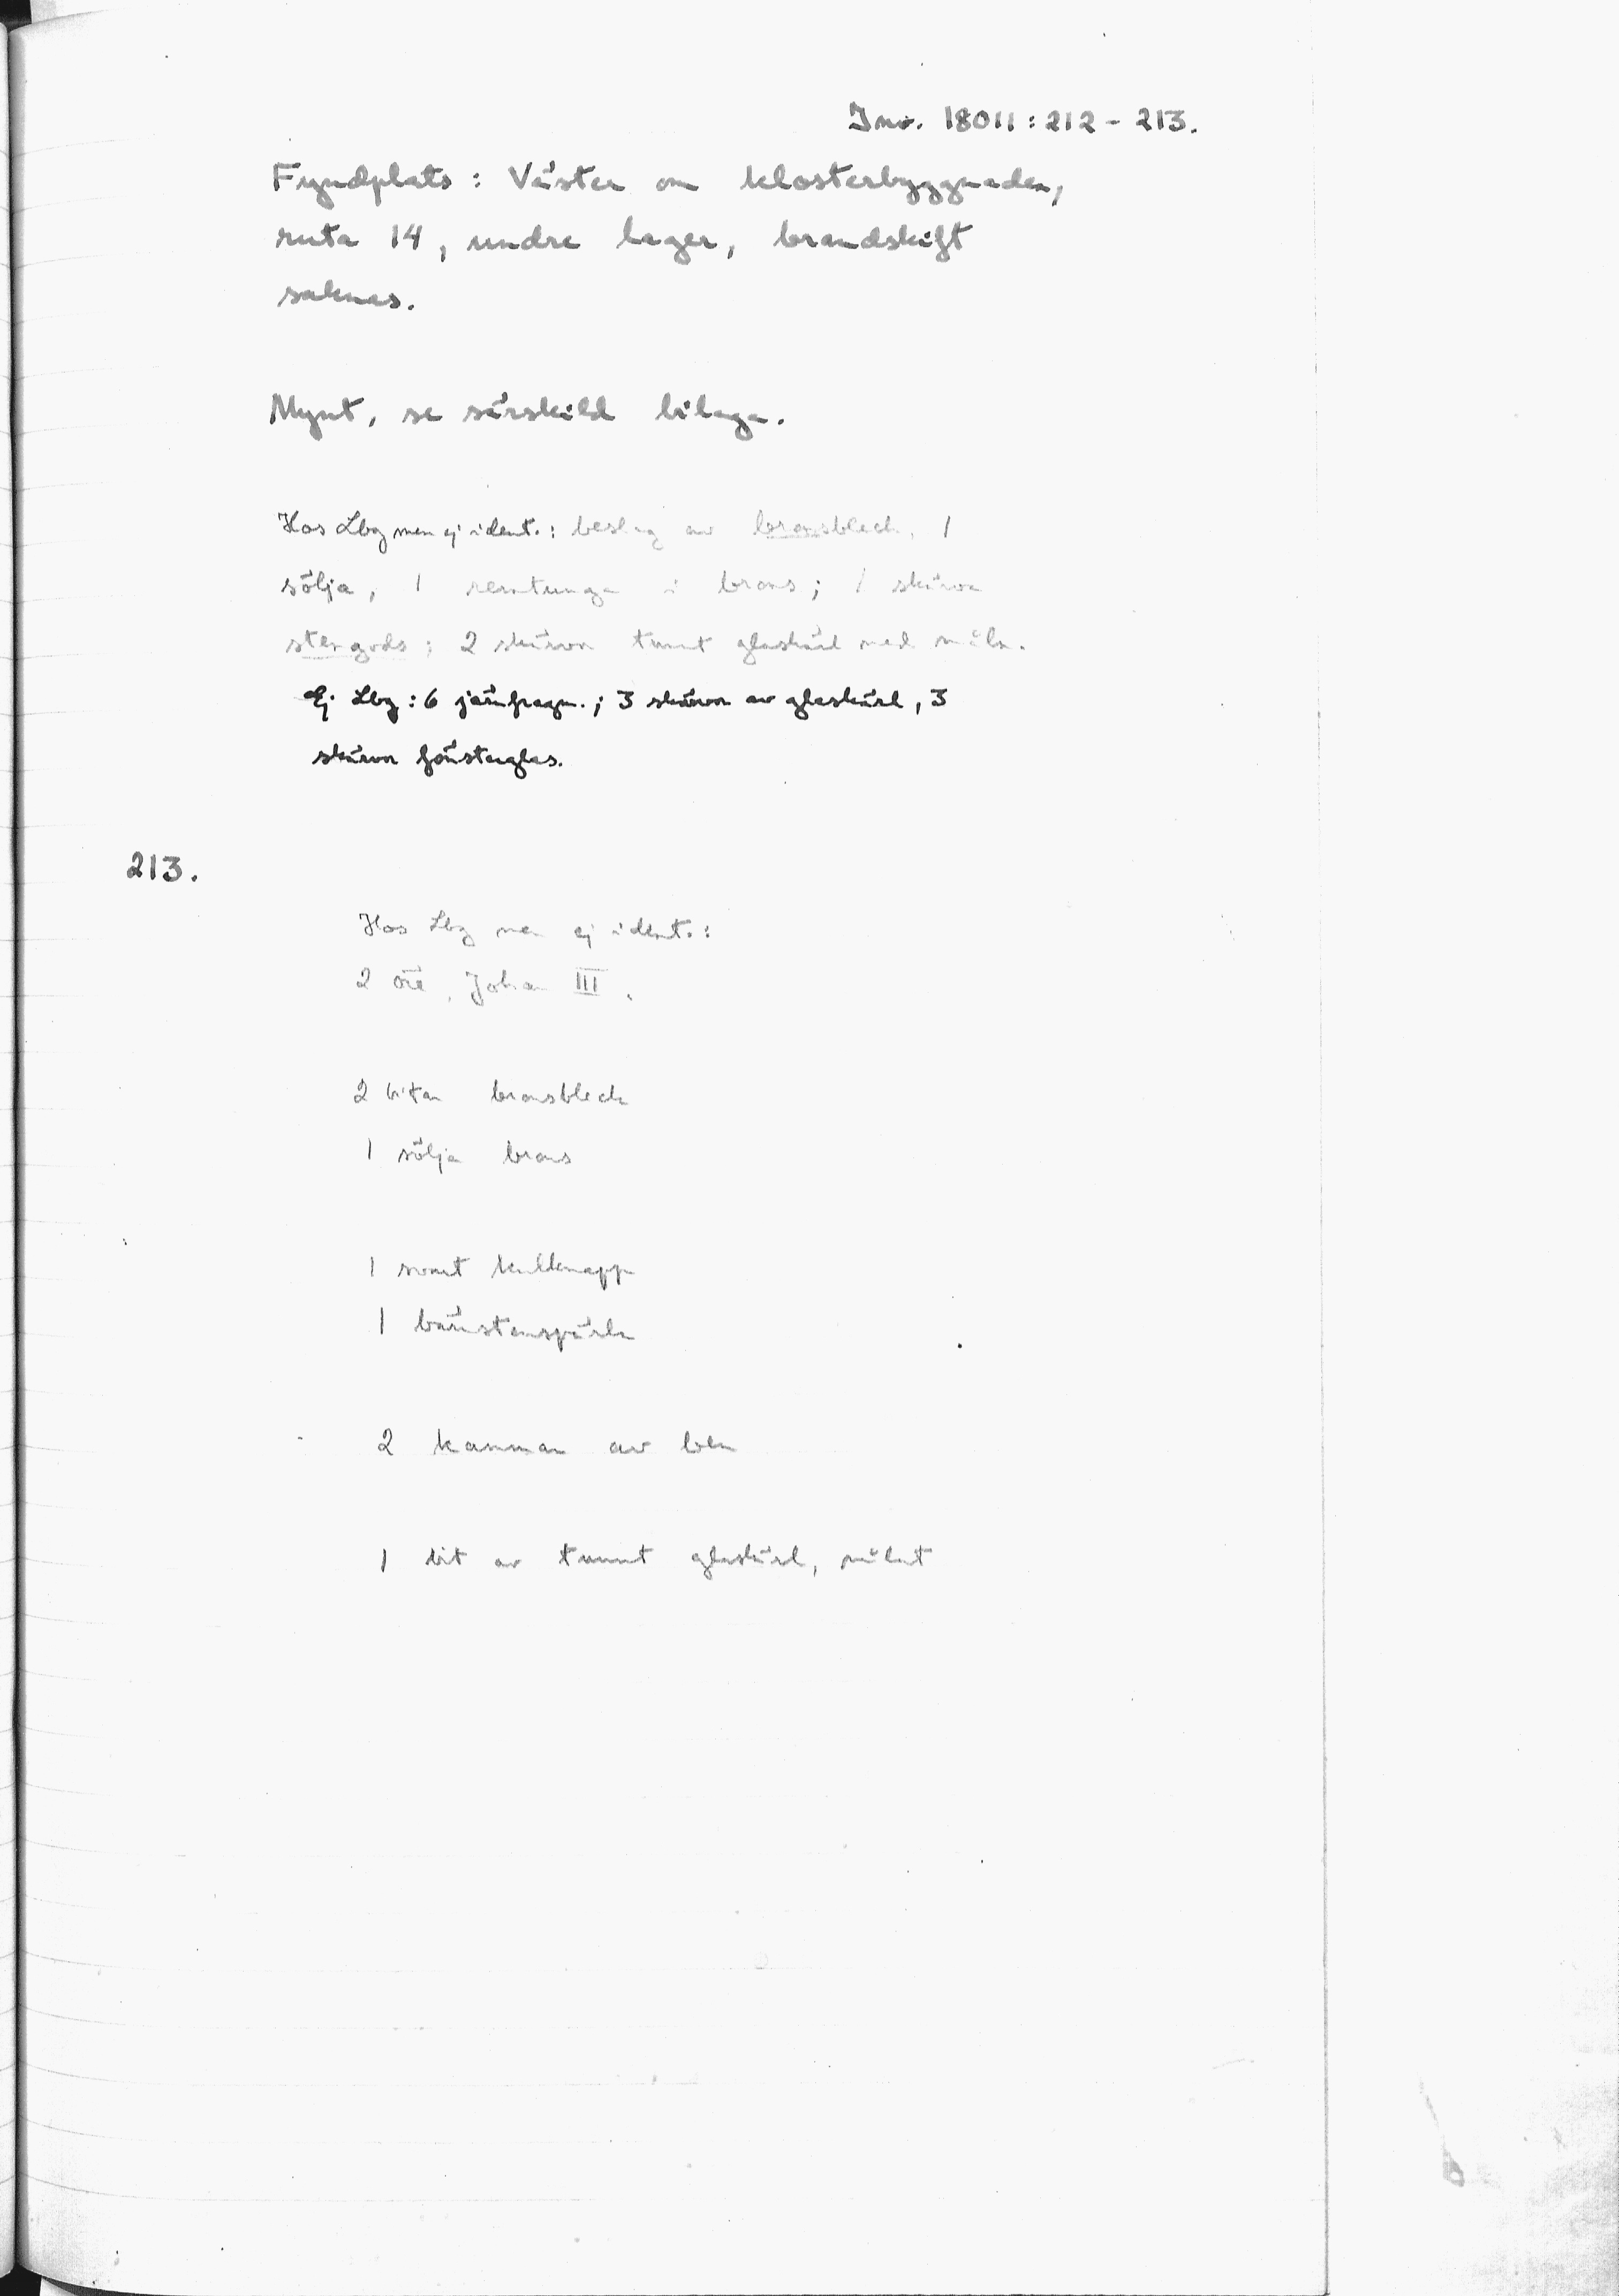 Inv. 18011:212 - 213.
Fyndplats: Väster om klosterbyggnaden,
ruta 14, undre lager, brandskift
saknas.
Mynt, se särskild bilaga.
Hos Lbg men ej ident.: beslag av bronsbleck, 1
sölja, 1 remtunga i brons; 1 skärva
stengods; 2 skärvor tunt glaskärl med måln.
Ej Lbg: 6 järnfragm.; 3 skärvor av glaskärl, 3
skärvor fönsterglas.
213.
Hos Lbg men ej ident.:
2 öre, Johan III.
2 bitar bronsbleck
1 sölja brons
1 svart kulknapp
1 bärnstenspärla
2 kammar av ben
1 bit av tunnt glaskärl, målat